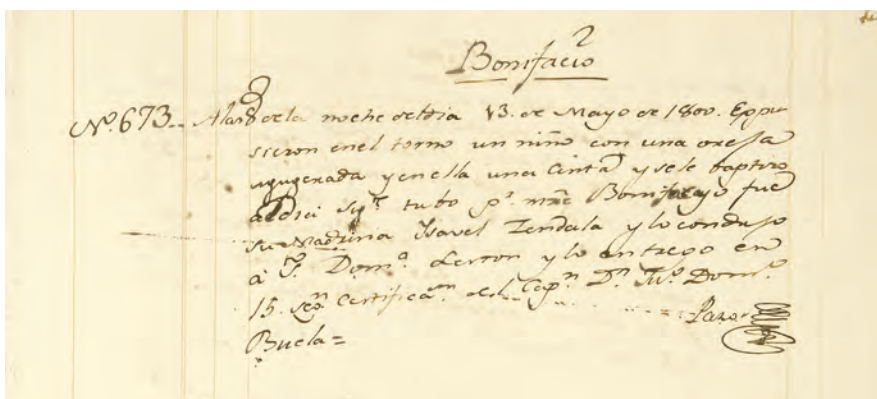 Bonifacio
Nº. 673.. Alas 8 de la noche del dia 13. de Mayo de 1800. Expu
sieron en el torno un niño con una oreja
agugerada y en ella una Cinta y sele baptizo
al dia sigte. tubo pr. nre. Bonifacio fue
su Madrina Ysavel Zendala y lo condujo
à Sn. Domo. Lerron y lo entrego en
15. seg. Certificaon. del Capn. Dn. Juo. Domo.
Pazos
Buela=